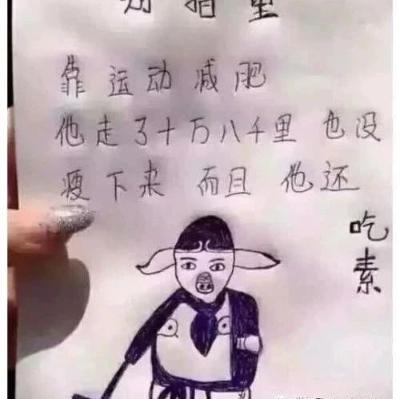 别指望
靠运动减肥
他走了十万八千里也没
瘦下来 而且他还
吃素